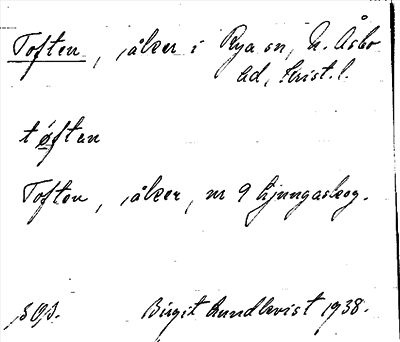 Toften, åker i Rya sn, N. Åsbo
hd, Krist. l.
tøften
Toften, åker, nr 9 Ljungaskog.
Birgit Lundkvist 1938.